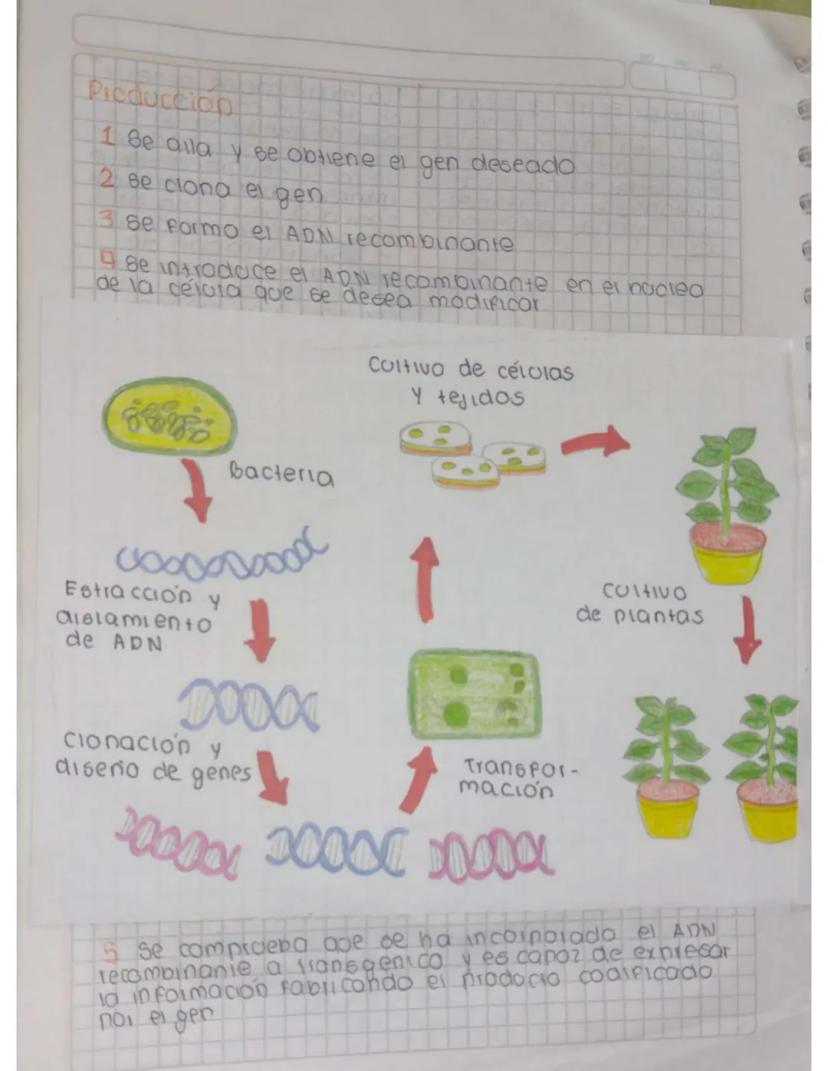 Producción
1 Se aila y se obtiene el gen deseado
2 Se clona el gen
3 Se formo el ADN recombinante
4 Se introduce el ADN recombinante en el nucleo
de la célula que se desea modificar
Cultivo de células
y tejidos
Bacteria
Estracción y
aislamiento
de ADN
Cultivo
de plantas
Clonación y
diseño de genes
Transfor-
mación
5 Se comprueba que se ha incorporado el ADN
recombinante a transgenico y es capaz de expresar
la información fabricando el producto codificado
por el gen